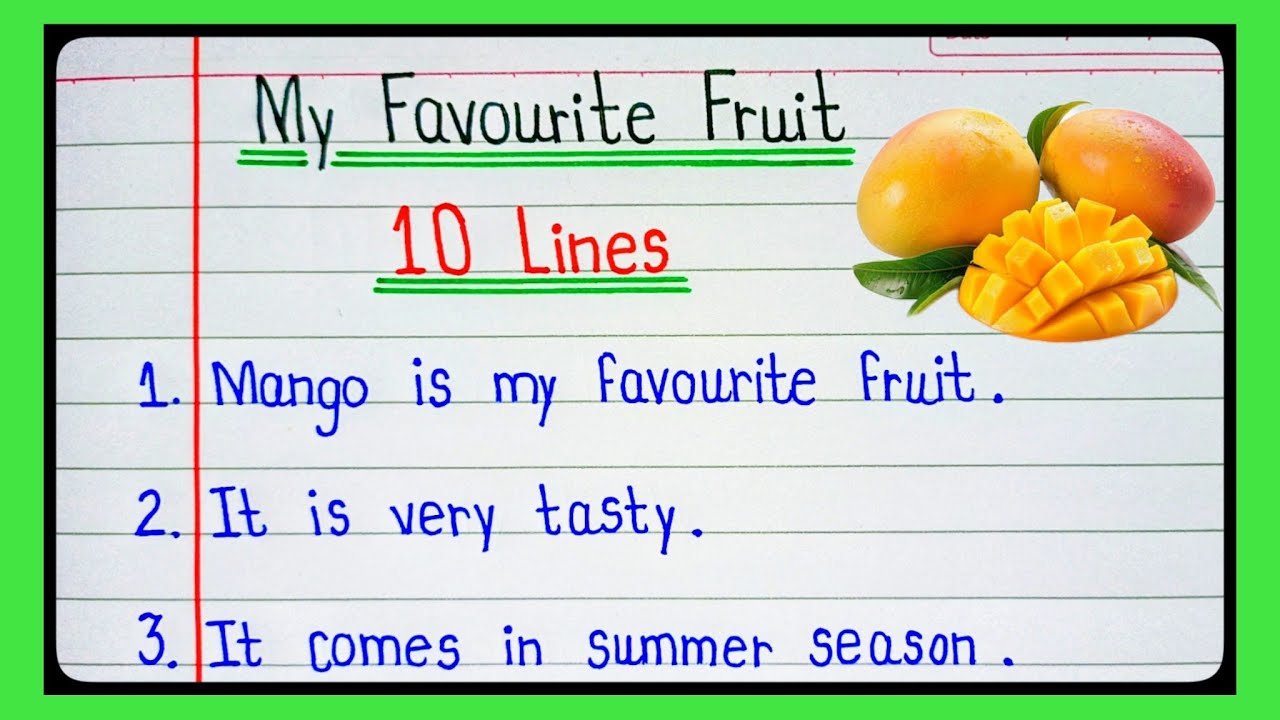 My Favourite Fruit
10 Lines
1. Mango is my favourite fruit.
2. It is very tasty.
3. It comes in summer season.